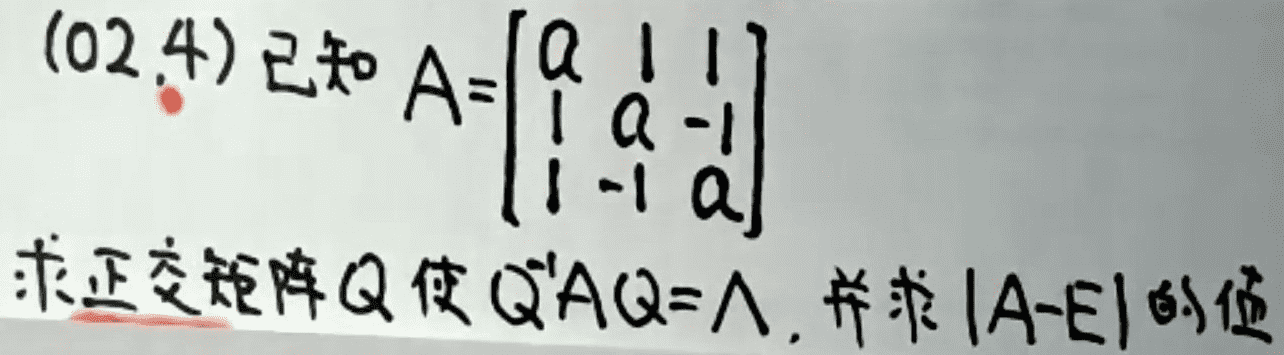 (02.4) 已知 A=[a 1 1
1 a -1
1 -1 a]
求正交矩阵Q使Q⁻¹AQ=Λ. 并求|A-E|的值